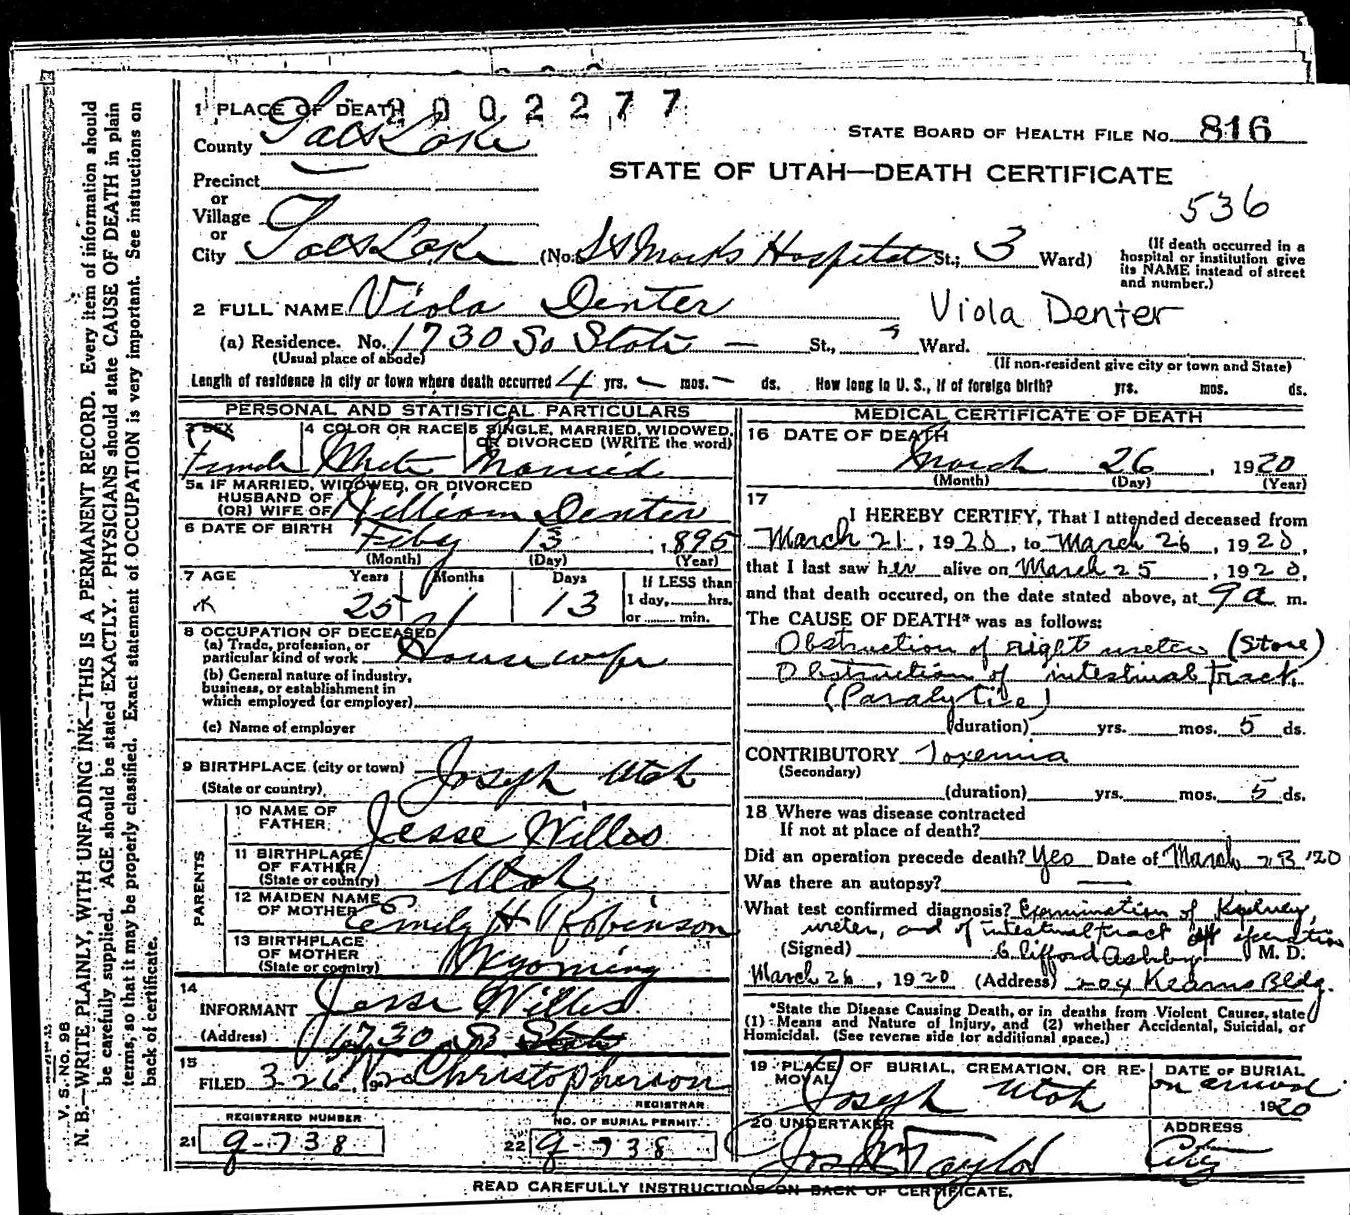 2002277
1 PLACE OF DEATH
County Salt Lake
STATE BOARD OF HEALTH FILE No. 816
STATE OF UTAH—DEATH CERTIFICATE
536
Precinct
or
Village
or
City Salt Lake (No. St Marks Hospital St.; 3 Ward)
(If death occurred in a hospital or institution give its NAME instead of street and number.)
2 FULL NAME Viola Denter Viola Denter
(a) Residence. No. 1730 So State — St., Ward.
(Usual place of abode) (If non-resident give city or town and State)
Length of residence in city or town where death occurred 4 yrs. — mos. — ds. How long in U. S., if of foreign birth? yrs. mos. ds.
PERSONAL AND STATISTICAL PARTICULARS
3 SEX 4 COLOR OR RACE 5 SINGLE, MARRIED, WIDOWED, OR DIVORCED (WRITE the word)
Female White Married
5a IF MARRIED, WIDOWED, OR DIVORCED
HUSBAND OF
(OR) WIFE OF William Denter
6 DATE OF BIRTH Feby 13, 1895
(Month) (Day) (Year)
7 AGE Years Months Days If LESS than
25 1 13 1 day, hrs.
or min.
8 OCCUPATION OF DECEASED
(a) Trade, profession, or
particular kind of work Housewife
(b) General nature of industry,
business, or establishment in
which employed (or employer)
(c) Name of employer
9 BIRTHPLACE (city or town) Joseph Utah
(State or country)
PARENTS
10 NAME OF
FATHER Jesse Willes
11 BIRTHPLACE
OF FATHER Utah
(State or country)
12 MAIDEN NAME
OF MOTHER Emily H Robinson
13 BIRTHPLACE
OF MOTHER Wyoming
(State or country)
14
INFORMANT Jesse Willes
(Address) 1730 So State
15
FILED 3 26, 1920 Christopherson
REGISTRAR
REGISTERED NUMBER NO. OF BURIAL PERMIT
21 9-738 22 9-738
MEDICAL CERTIFICATE OF DEATH
16 DATE OF DEATH
March 26, 1920
(Month) (Day) (Year)
17
I HEREBY CERTIFY, That I attended deceased from
March 21, 1920, to March 26, 1920,
that I last saw her alive on March 25, 1920,
and that death occured, on the date stated above, at 9 a m.
The CAUSE OF DEATH* was as follows:
Obstruction of right ureter (Stone)
Obstruction of intestinal tract
(Paralytic)
(duration) yrs. mos. 5 ds.
CONTRIBUTORY Toxemia
(Secondary)
(duration) yrs. mos. 5 ds.
18 Where was disease contracted
If not at place of death?
Did an operation precede death? Yes Date of March 23 '20
Was there an autopsy? —
What test confirmed diagnosis? Examination of Kidney,
ureter, and of intestinal tract at operation
(Signed) Clifford Ashby M. D.
March 26, 1920 (Address) 204 Kearns Bldg.
*State the Disease Causing Death, or in deaths from Violent Causes, state
(1) Means and Nature of Injury, and (2) whether Accidental, Suicidal, or
Homicidal. (See reverse side for additional space.)
19 PLACE OF BURIAL, CREMATION, OR REMOVAL DATE OF BURIAL
Joseph Utah on arrival 1920
20 UNDERTAKER ADDRESS
Jos Wm Taylor City
READ CAREFULLY INSTRUCTIONS ON BACK OF CERTIFICATE.
V. S. No. 98
N. B.—WRITE PLAINLY, WITH UNFADING INK—THIS IS A PERMANENT RECORD. Every item of information should
be carefully supplied. AGE should be stated EXACTLY. PHYSICIANS should state CAUSE OF DEATH in plain
terms, so that it may be properly classified. Exact statement of OCCUPATION is very important. See instructions on
back of certificate.